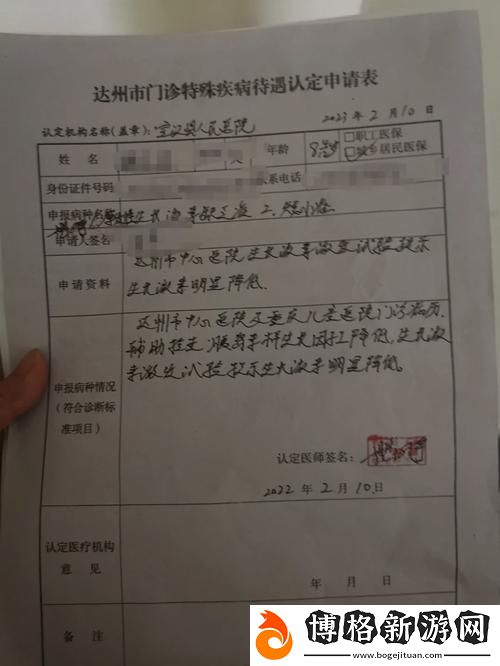 达州市门诊特殊疾病待遇认定申请表
认定机构名称(盖章): 宣汉县人民医院 2023 年 2 月 10 日
姓 名 年龄 8岁 □职工医保
□城乡居民医保
身份证件号码 系电话
申报病种名称 生长激素缺乏症 2.
申请人签名
申请资料 达州市中心医院生长激素激发试验提示
生长激素明显降低.
达州市中心医院及重庆儿童医院门诊病历.
辅助检查:胰岛素样生长因子降低.生长激
素激发试验提示生长激素明显降低。
申报病种情况
(符合诊断标
准项目)
认定医师签名:
2022 年 2 月 10 日
认定医疗机构
意 见
年 月 日
备 注
博格新游网
www.bogejituan.com